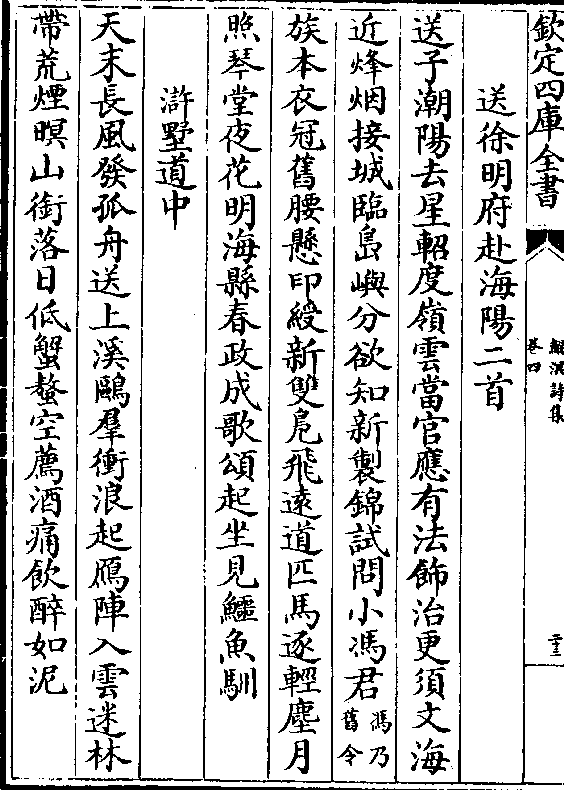 欽定四庫全書
鯤溟詩集
卷四
二十三
送徐明府赴海陽二首
送子潮陽去星軺度嶺雲當官應有法飾治更須文海
近烽烟接城臨島嶼分欲知新製錦試問小馮君馮乃舊令
族本衣冠舊腰懸印綬新雙鳧飛遠道匹馬逐輕塵月
照琴堂夜花明海縣春政成歌頌起坐見鱷魚馴
滸墅道中
天末長風發孤舟送上溪鷗羣衝浪起鴈陣入雲迷林
帶荒煙暝山銜落日低蟹螯空薦酒痛飲醉如泥